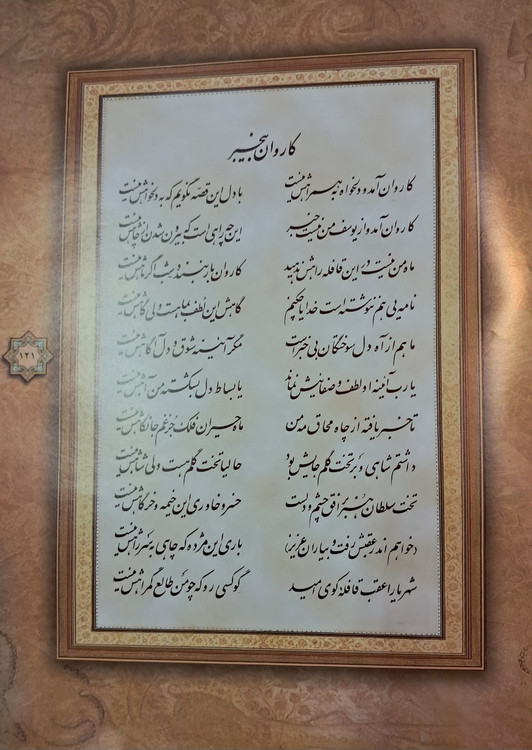 کاروان بیخبر
کاروان آمد و دلخواه به همراهش نیست
با دل این قصّه نگویم که به دلخواهش نیست
کاروان آمد و از یوسف من نیست خبر
این چه راهی است که بیرون شدن از چاهش نیست
ماه من نیست در این قافله راهش ندهید
کاروان بار نبندد شب اگر ماهش نیست
نامه‌یی هم ننوشته است خدایا چکنم
گاهش این لطف بما هست ولی گاهش نیست
ما هم از آه دل سوختگان بی خبر است
مگر آئینهٔ شوق و دل آگاهش نیست
یارب آئینه او لطف و صفائیش نماند
یا بساط دل بشکستهٔ من آهش نیست
تا خبر یافته از چاه محاق مه من
ماه حیران فلک جز غم جانکاهش نیست
داشتم شاهی و بر تخت گلم جایش بود
حالیا تخت گلم هست ولی شاهش نیست
تخت سلطان هنر بر افق چشم و دلست
خسرو خاوری این خیمه و خرگاهش نیست
خواهم اندر عقبش رفت و بیاران عزیز
باری این مژده که چاهی به سر راهش نیست
شهریارا عقب قافلهٔ کوی امید
گو کسی رو که چو من طالع گمراهش نیست
۱۲۱